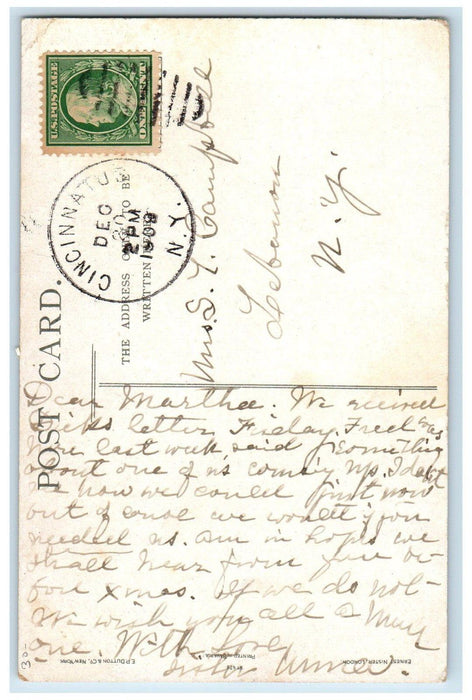 U.S. POSTAGE
ONE CENT
CINCINNATUS
N.Y.
DEC
20
2 PM
1909
POST CARD.
THE ADDRESS ONLY TO BE
WRITTEN HERE.
Mrs. S. Y. Campbell
Lebanon
N. Y.
Dear Martha. We received
letter Friday. Fred was
here last week, said something
about one of us coming up. I don't
see how we could just now
out of course we would if you
needed us. am in hopes we
shall hear from you be-
fore Xmas. if we do not-
We wish you all a Merry
one. With love
sister
E.P. DUTTON & CO., NEW YORK
PRINTED IN BAVARIA
ERNEST NISTER, LONDON
30-